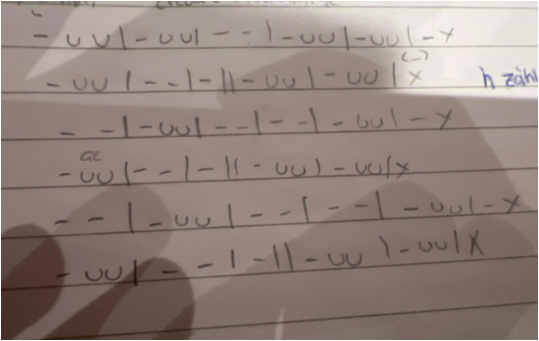 - ∪∪|-∪∪|--|-∪∪|-∪∪|-x
(-)
-∪∪|--|-||-∪∪|-∪∪|x h zähl
--|-∪∪|--|--|-∪∪|-x
ae
-∪∪|--|-||-∪∪|-∪∪|x
--|-∪∪|--|--|-∪∪|-x
-∪∪|--|-||-∪∪|-∪∪|x